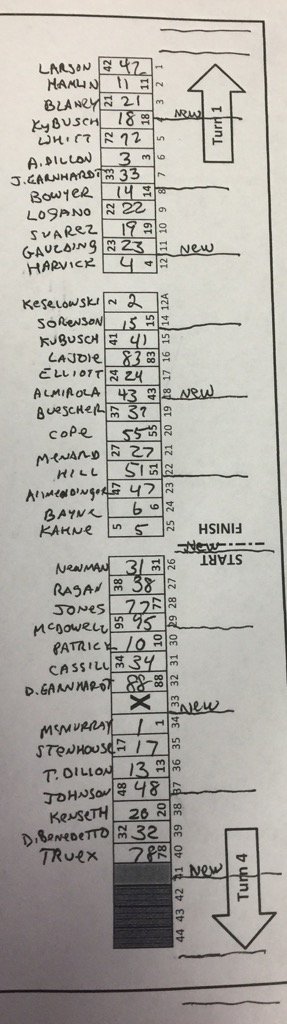 LARSON 42 42 1
HAMLIN 11 11 2
BLANEY 21 21 3
KyBUSCH 18 18 4 New
Turn 1
WHITT 72 72 5
A.DILLON 3 3 6
J.EARNHARDT 33 33 7
BOWYER 14 14 8
LOGANO 22 22 9
SUAREZ 19 19 10
GAULDING 23 23 11 New
HARVICK 4 4 12
KESELOWSKI 2 2 12A
SORENSON 15 15 14
KUBUSCH 41 41 15
LAJOIE 83 83 16
ELLIOTT 24 24 17
ALMIROLA 43 43 18 New
BUESCHER 37 37 19
COPE 55 55 20
MENARD 27 27 21
HILL 51 51 22
Allmendinger 47 47 23
BAYNE 6 6 24
KAHNE 5 5 25
FINISH
New
START
NEWMAN 31 31 26
RAGAN 38 38 27
JONES 77 77 28
MCDOWELL 95 95 29
PATRICK 10 10 30
CASSILL 34 34 31
D.EARNHARDT 88 88 32
X 33 New
MCMURRAY 1 1 34
STENHOUSE 17 17 35
T.DILLON 13 13 36
JOHNSON 48 48 37
KENSETH 20 20 38
D.BENEDETTO 32 32 39
TRUEX 78 78 40
41 New
Turn 4
42
43
44